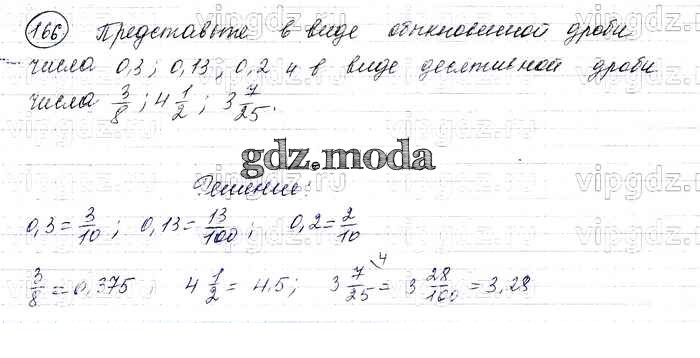 166 Представьте в виде обыкновенной дроби
числа 0,3; 0,13; 0,2 и в виде десятичной дроби
числа 3/8; 4 1/2; 3 7/25.
gdz.moda
Решение:
0,3 = 3/10; 0,13 = 13/100; 0,2 = 2/10
3/8 = 0,375 4 1/2 = 4,5; 3 7/25 \4 = 3 28/100 = 3,28
vipgdz.ru